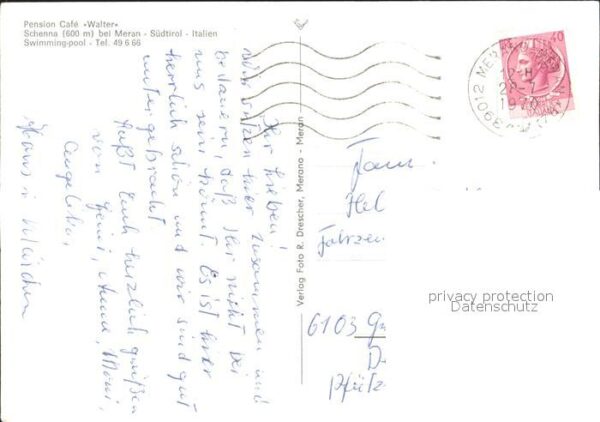 Pension Café »Walter«
Schenna (600 m) bei Meran - Südtirol - Italien
Swimming-pool - Tel. 49 6 66
Ihr Lieben!
Wir sitzen hier zusammen und
bedauern, daß Ihr nicht bei
uns sein könnt. Es ist hier
herrlich schön und wir sind gut
untergebracht.
Laßt Euch herzlich grüßen
von
Angelika,
Hans u.
Verlag Foto R. Drescher, Merano - Meran
40
12-H
1970
39012 MER
Fam.
Hel
6103 G
privacy protection
Datenschutz